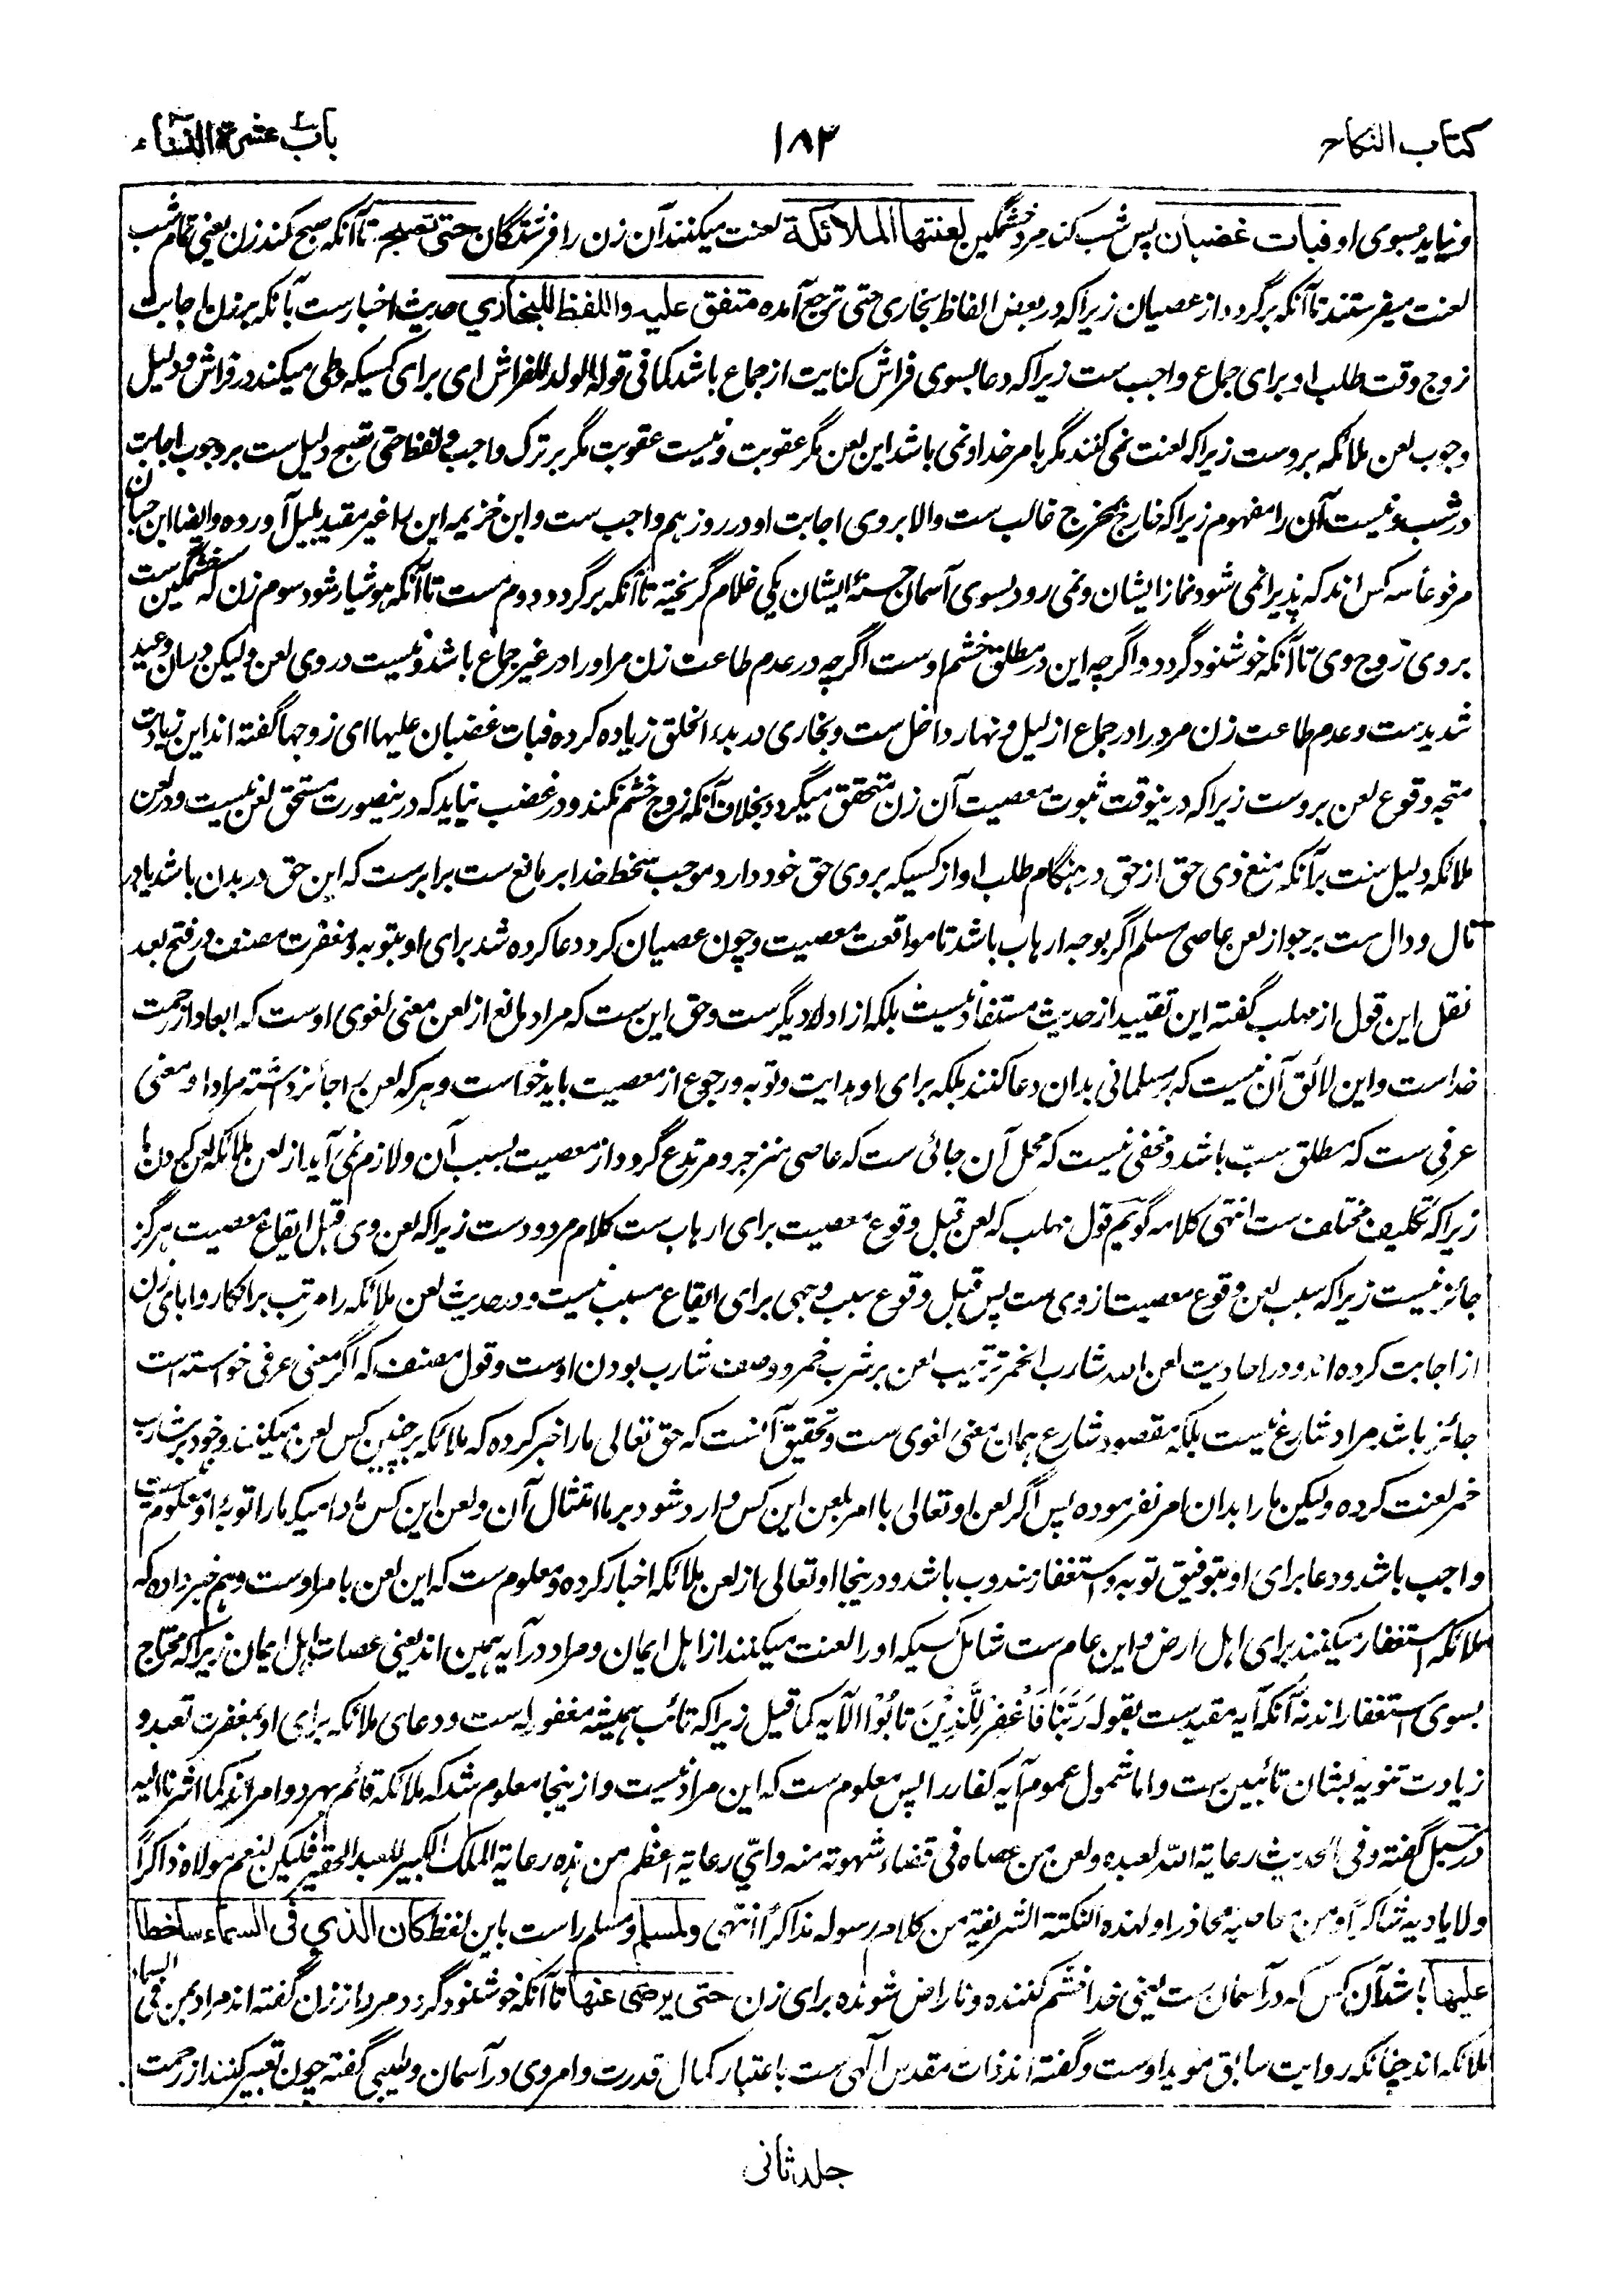 کتاب النکاح
۱۸۳
باب عشرة النساء
و نیاید بسوی او فبات غضبان پس شب کند مرد خشمگین لعنتها الملائكة لعنت میکنند آن زن را فرشتگان حتی تصبح تا آنکه صبح کند زن یعنی تمام شب
لعنت میفرستند تا آنکه برگردد از عصیان زیرا که در بعض الفاظ بخاری حتی ترجع آمده متفق علیه واللفظ للبخاري حدیث اخبارست بآنکه بر زن اجابت
زوج وقت طلب او برای جماع واجب ست زیرا که دعا بسوی فراش کنایت از جماع باشد کما فی قوله الولد للفراش ای برای کسیکه وطی میکند در فراش و دلیل
وجوب لعن ملائکه بروست زیرا که لعنت نمی کنند مگر بامر خدا و نمی باشد این لعن مگر عقوبت و نیست عقوبت مگر بر ترک واجب و لفظ حتی تصبح دلیل ست بر وجوب اجابت
در شب و نیست آن را مفهوم زیرا که خارج مخرج غالب ست والا بروی اجابت او در روز هم واجب ست و ابن خزیمه این را غیر مقید بلیل آورده وایضا ابن حبان
مرفوعا سه کس اند که پذیرا نمی شود نماز ایشان و نمی رود بسوی آسمان حسنهٔ ایشان یکی غلام گریخته تا آنکه برگردد دوم مست تا آنکه هوشیار شود سوم زن که خشمگین ست
بروی زوج وی تا آنکه خوشنود گردد و اگرچه این در مطلق خشم اوست اگرچه در عدم طاعت زن مر او را در غیر جماع باشد و نیست در وی لعن ولیکن در آن وعید
شدیدست و عدم طاعت زن مرد را در جماع از لیل و نهار داخل ست و بخاری در بدء الخلق زیاده کرده فبات غضبان علیها ای زوجها گفته اند این زیادت
متجه وقوع لعن بروست زیرا که درینوقت ثبوت معصیت آن زن متحقق میگردد بخلاف آنکه زوج خشم نکند و در غضب نیاید که درینصورت مستحق لعن نیست و در لعن
ملائکه دلیل ست برآنکه منع ذی حق از حق در هنگام طلب او از کسیکه بروی حق خود دارد موجب سخط خدا بر مانع ست برابرست که این حق در بدن باشد یا در
مال و دال ست بر جواز لعن عاصی مسلم اگر بوجه ارهاب باشد تا مواقعت معصیت و چون عصیان کرد دعا کرده شد برای او بتوبه و مغفرت مصنف در فتح بعد
نقل این قول از مهلب گفته این تقیید از حدیث مستفاد نیست بلکه از ادلهٔ دیگرست و حق این ست که مراد مانع از لعن معنی لغوی اوست که ابعاد از رحمت
خداست و این لائق آن نیست که بر مسلمانی بدان دعا کنند بلکه برای او هدایت و توبه و رجوع از معصیت باید خواست و هر که لعن را جائز داشته مراد او معنی
عرفی ست که مطلق سبّ باشد و مخفی نیست که محل آن جائی ست که عاصی منزجر و مرتدع گردد از معصیت بسبب آن و لازم نمی آید از لعن ملائکه لعن کردن ما
زیرا که تکلیف مختلف ست انتهی کلامه گویم قول مهلب که لعن قبل وقوع معصیت برای ارهاب ست کلام مردود ست زیرا که لعن وی قبل ایقاع معصیت هرگز
جائز نیست زیرا که سبب لعن وقوع معصیت از وی ست پس قبل وقوع سبب وجهی برای ایقاع مسبب نیست و در حدیث لعن ملائکه را مرتب بر انکار و ابای زن
از اجابت کرده اند و در احادیث لعن الله شارب الخمر ترتیب لعن بر شرب خمر و وصف شارب بودن اوست و قول مصنف که اگر معنی عرفی خواسته است
جائز باشد مراد شارع نیست بلکه مقصود شارع همان معنی لغوی ست و تحقیق آنست که حق تعالی ما را خبر کرده که ملائکه بر چنین کس لعن میکنند و خود بر شارب
خمر لعنت کرده ولیکن ما را بدان امر نفرموده پس اگر لعن او تعالی با امر بلعن این کس وارد شود بر ما امتثال آن و لعن این کس مادامیکه ما را توبهٔ او معلوم نیست
واجب باشد و دعا برای او بتوفیق توبه و استغفار مندوب باشد و درینجا او تعالی از لعن ملائکه اخبار کرده و معلوم ست که این لعن بامر اوست و هم خبر داده که
ملائکه استغفار میکنند برای اهل ارض و این عام ست شامل کسیکه او را لعنت میکنند از اهل ایمان و مراد در آیه همین اند یعنی عصات اهل ایمان زیرا که محتاج
بسوی استغفار اند نه آنکه آیه مقیدست بقوله رَبَّنَا فَاغْفِرْ لِلَّذِيْنَ تَابُوْا الآیه کما قیل زیرا که تائب همیشه مغفور له ست و دعای ملائکه برای او بمغفرت تعبد و
زیادت تنویه بشان تائبین ست و اما شمول عموم آیه کفار را پس معلوم ست که این مراد نیست و از ینجا معلوم شد که ملائکه قائم بهر دو امر اند کما اشرنا الیه
در سبل گفته و فی الحدیث رعایة الله لعبده و لعن من عصاه فی قضاء شهوته منه و ایّ رعایة اعظم من هذه رعایة الملک الکبیر للعبد الحقیر فلیکن لنعم مولاه ذاکراً
ولایادیه شاکراً و من معاصیه محاذرا ولهذه النکتة الشریفة من کلام رسوله مذاکراً انتهی ولمسلم و مسلم راست باین لفظ كان الذي في السماء ساخطا
عليها باشد آن کس که در آسمان ست یعنی خدا خشم کننده و ناراض شونده برای زن حتی یرضی عنها تا آنکه خوشنود گردد مرد از زن گفته اند مراد بمن فی السماء
ملائکه اند چنانکه روایت سابق موید اوست و گفته اند ذات مقدس الهی ست باعتبار کمال قدرت و امر وی در آسمان و طیبی گفته چون تعبیر کنند از رحمت
جلد ثانی